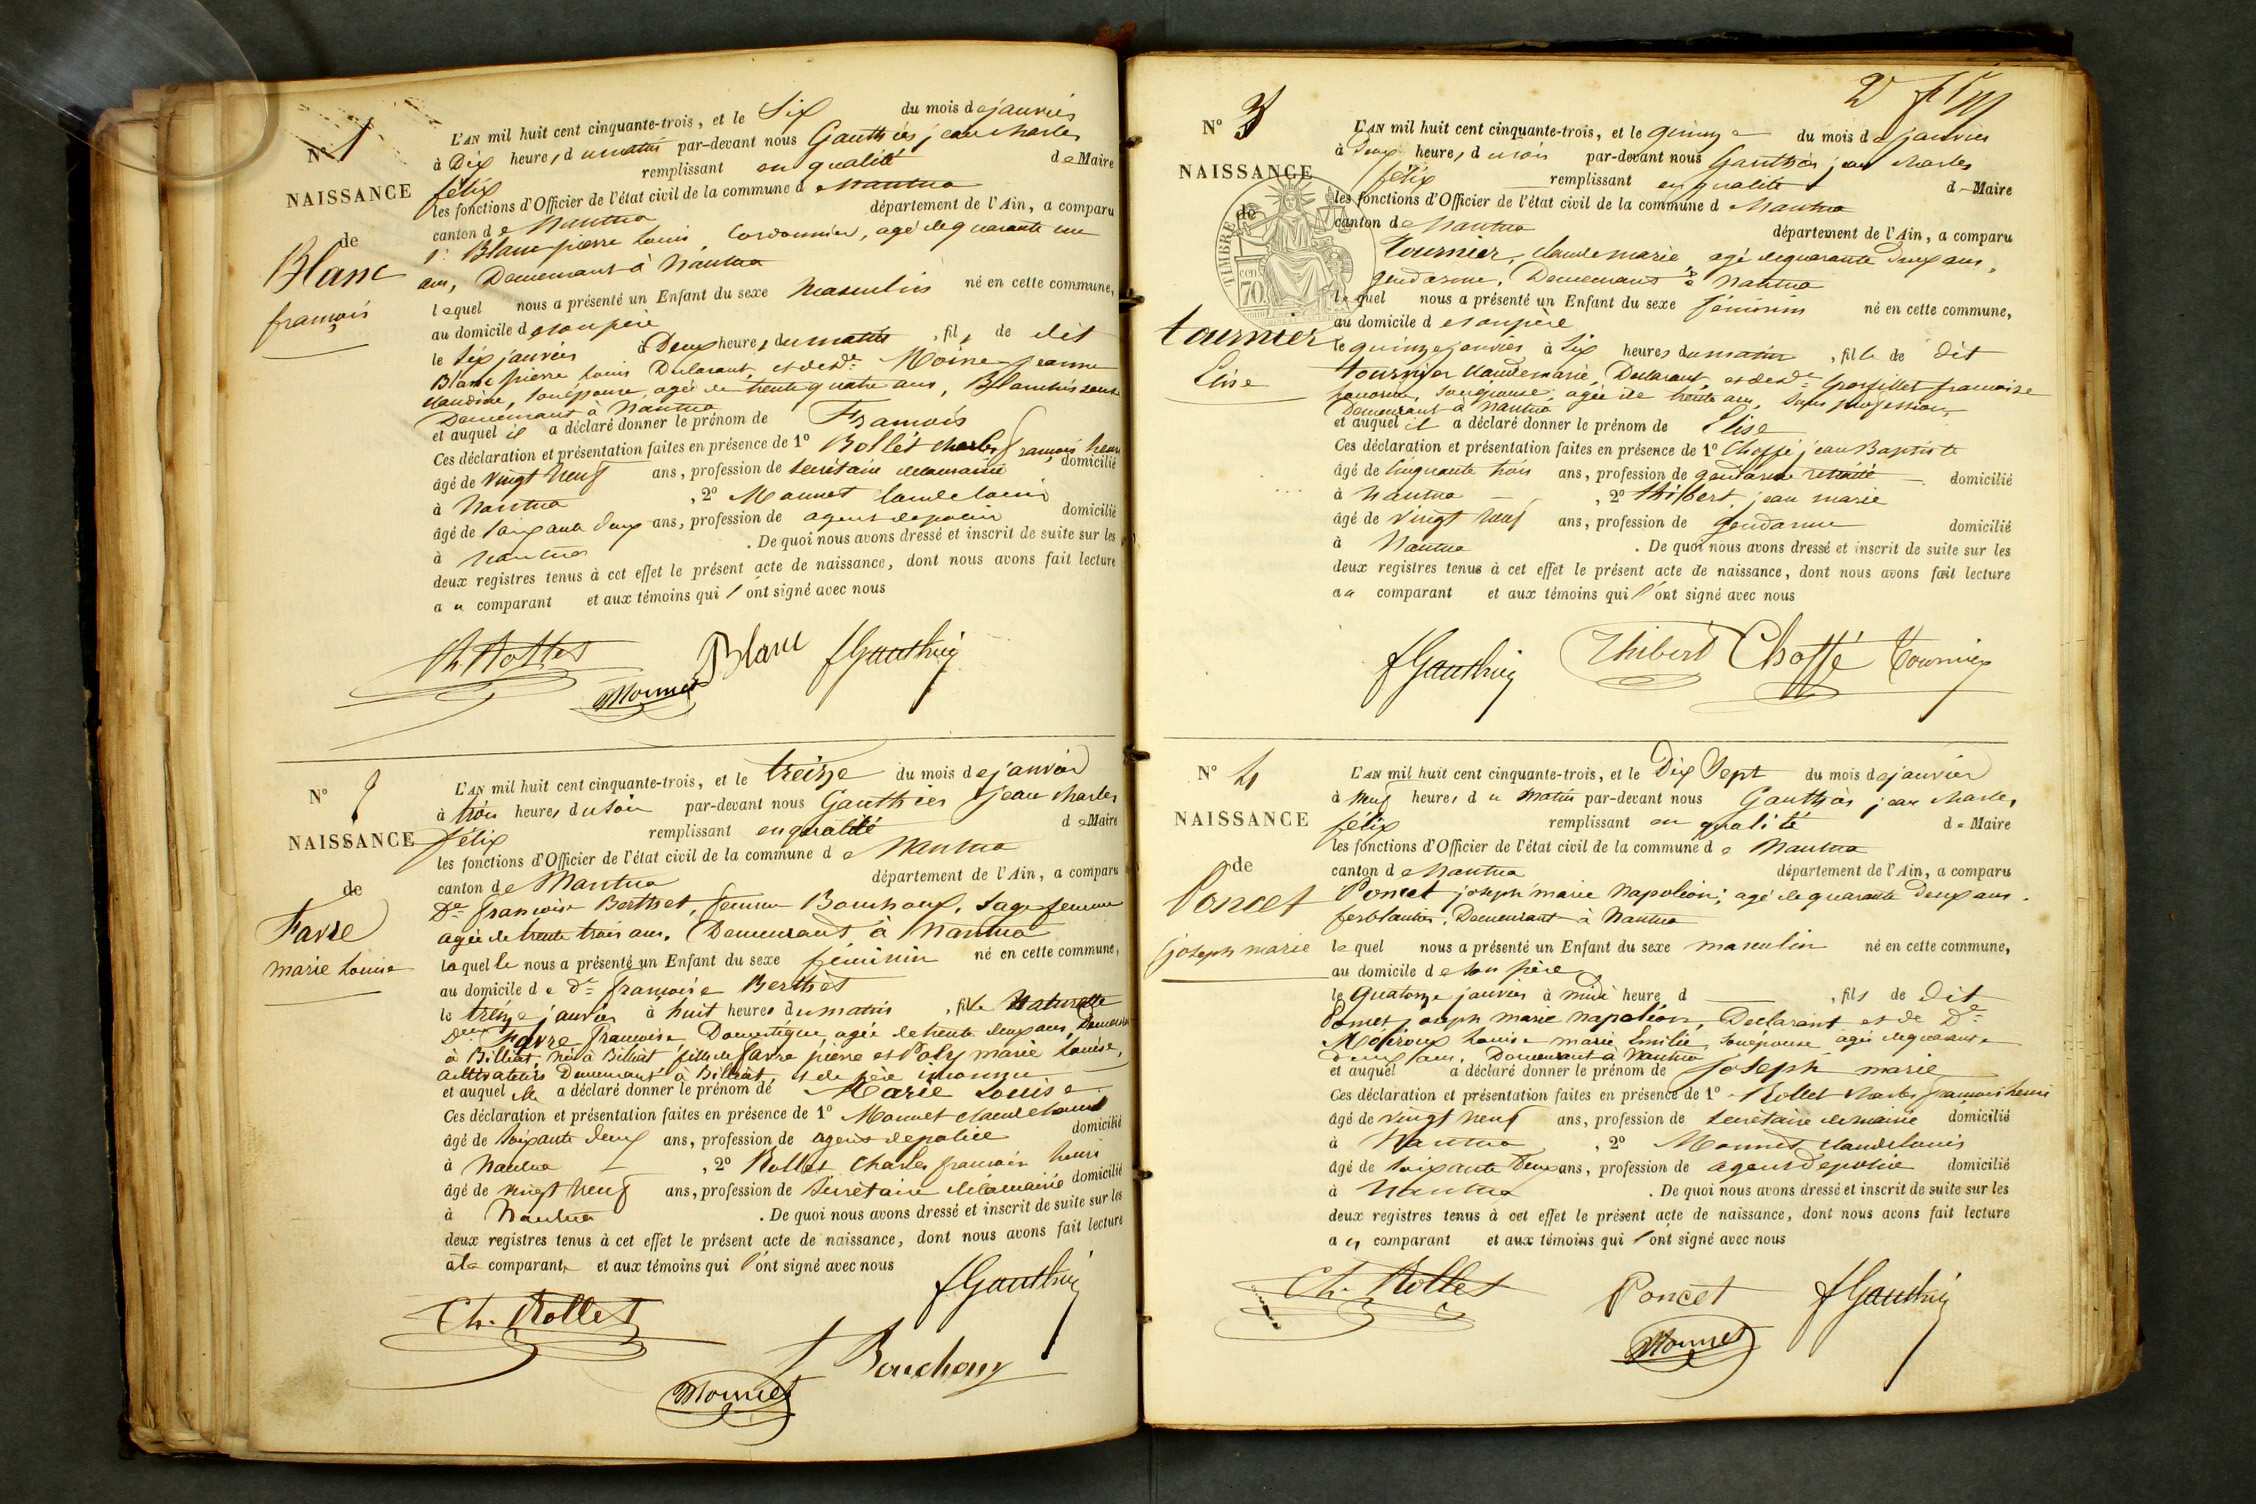 N° 1
NAISSANCE
de
Blanc
françois
L'AN mil huit cent cinquante-trois, et le Six du mois de janvier
à Dix heures du matin par-devant nous Gauthier jean charles
félix remplissant en qualité de Maire
les fonctions d'Officier de l'état civil de la commune de Nantua
canton de Nantua département de l'Ain, a comparu
Blanc pierre Louis, Cordonnier, agé de quarante un
ans, Demeurant à Nantua
lequel nous a présenté un Enfant du sexe Masculin né en cette commune,
au domicile de son père
le Six janvier à Deux heures du matin, fils de dit
Blanc pierre Louis Déclarant, et de De Moine jeanne
claudine, son épouse, agée de trente quatre ans, Blanchisseuse
Demeurant à Nantua
et auquel il a déclaré donner le prénom de François
Ces déclaration et présentation faites en présence de 1° Rollet charles françois henri
âgé de vingt neuf ans, profession de Secrétaire de la mairie domicilié
à Nantua, 2° Monnet Claude Louis
âgé de Soixante Deux ans, profession de agent de police domicilié
à Nantua. De quoi nous avons dressé et inscrit de suite sur les
deux registres tenus à cet effet le présent acte de naissance, dont nous avons fait lecture
au comparant et aux témoins qui l'ont signé avec nous
Ch Rollet
Blanc
f Gauthier
Monnet
N° 2
NAISSANCE
de
Favre
marie Louise
L'AN mil huit cent cinquante-trois, et le treize du mois de janvier
à trois heures du soir par-devant nous Gauthier jean charles
félix remplissant en qualité de Maire
les fonctions d'Officier de l'état civil de la commune de Nantua
canton de Nantua département de l'Ain, a comparu
De françoise Berthet, femme Bouchoux, Sage femme
agée de trente trois ans. Demeurant à Nantua
laquelle nous a présenté un Enfant du sexe féminin né en cette commune,
au domicile de De françoise Berthet
le treize janvier à huit heures du matin, fille Naturelle
Favre françoise Domestique, agée de trente deux ans, Demeurant
à Billiat, née à Billiat fille de favre pierre et Poly marie Louise,
Cultivateurs Demeurant à Billiat et de père inconnu
et auquel elle a déclaré donner le prénom de Marie Louise
Ces déclaration et présentation faites en présence de 1° Monnet Claude Louis
âgé de Soixante deux ans, profession de agent de police domicilié
à Nantua, 2° Rollet Charles françois henri
âgé de vingt neuf ans, profession de Secrétaire de la mairie domicilié
à Nantua. De quoi nous avons dressé et inscrit de suite sur les
deux registres tenus à cet effet le présent acte de naissance, dont nous avons fait lecture
à la comparante et aux témoins qui l'ont signé avec nous
f Gauthier
Ch. Rollet
f Bouchoux
Monnet
2
N° 3
NAISSANCE
de
TIMBRE
70
tournier
Elise
L'AN mil huit cent cinquante-trois, et le quinze du mois de janvier
à Deux heures du soir par-devant nous Gauthier jean charles
félix remplissant en qualité de Maire
les fonctions d'Officier de l'état civil de la commune de Nantua
canton de Nantua département de l'Ain, a comparu
tournier, claude marie agé de quarante Deux ans,
gendarme, Demeurant à Nantua
lequel nous a présenté un Enfant du sexe féminin né en cette commune,
au domicile de son père
le quinze janvier à Six heures du matin, fille de dit
tournier claude marie, Déclarant, et de De françoise
son épouse, agée de trente ans, Sans profession
Demeurant à Nantua
et auquel il a déclaré donner le prénom de Elise
Ces déclaration et présentation faites en présence de 1° Choffé jean Baptiste
âgé de Cinquante trois ans, profession de gendarme retraité domicilié
à Nantua, 2° thibert, jean marie
âgé de vingt neuf ans, profession de gendarme domicilié
à Nantua. De quoi nous avons dressé et inscrit de suite sur les
deux registres tenus à cet effet le présent acte de naissance, dont nous avons fait lecture
au comparant et aux témoins qui l'ont signé avec nous
f Gauthier
Thibert
Choffé
Tournier
N° 4
NAISSANCE
de
Poncet
joseph marie
L'AN mil huit cent cinquante-trois, et le Dix Sept du mois de janvier
à Neuf heures du matin par-devant nous Gauthier jean charles
félix remplissant en qualité de Maire
les fonctions d'Officier de l'état civil de la commune de Nantua
canton de Nantua département de l'Ain, a comparu
Poncet joseph marie Napoléon, agé de quarante Deux ans.
ferblantier, Demeurant à Nantua
lequel nous a présenté un Enfant du sexe masculin né en cette commune,
au domicile de son père
le Quatorze janvier à midi heure d, fils de dit
Poncet joseph marie napoléon, Déclarant et de De
Louise marie Emilie, son épouse agée de quarante
deux ans, Demeurant à Nantua
et auquel a déclaré donner le prénom de joseph marie
Ces déclaration et présentation faites en présence de 1° Rollet charles françois henri
âgé de vingt neuf ans, profession de Secrétaire de mairie domicilié
à Nantua, 2° Monnet Claude Louis
âgé de Soixante Deux ans, profession de agent de police domicilié
à Nantua. De quoi nous avons dressé et inscrit de suite sur les
deux registres tenus à cet effet le présent acte de naissance, dont nous avons fait lecture
au comparant et aux témoins qui l'ont signé avec nous
Ch. Rollet
Poncet
f Gauthier
Monnet